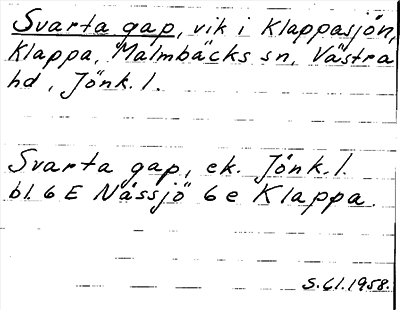 Svarta gap, vik i Klappasjön,
Klappa, Malmbäcks sn, Västra
hd, Jönk. l.
Svarta gap, ek. Jönk. l.
bl. 6 E Nässjö 6 e Klappa.
S. 61. 1958.